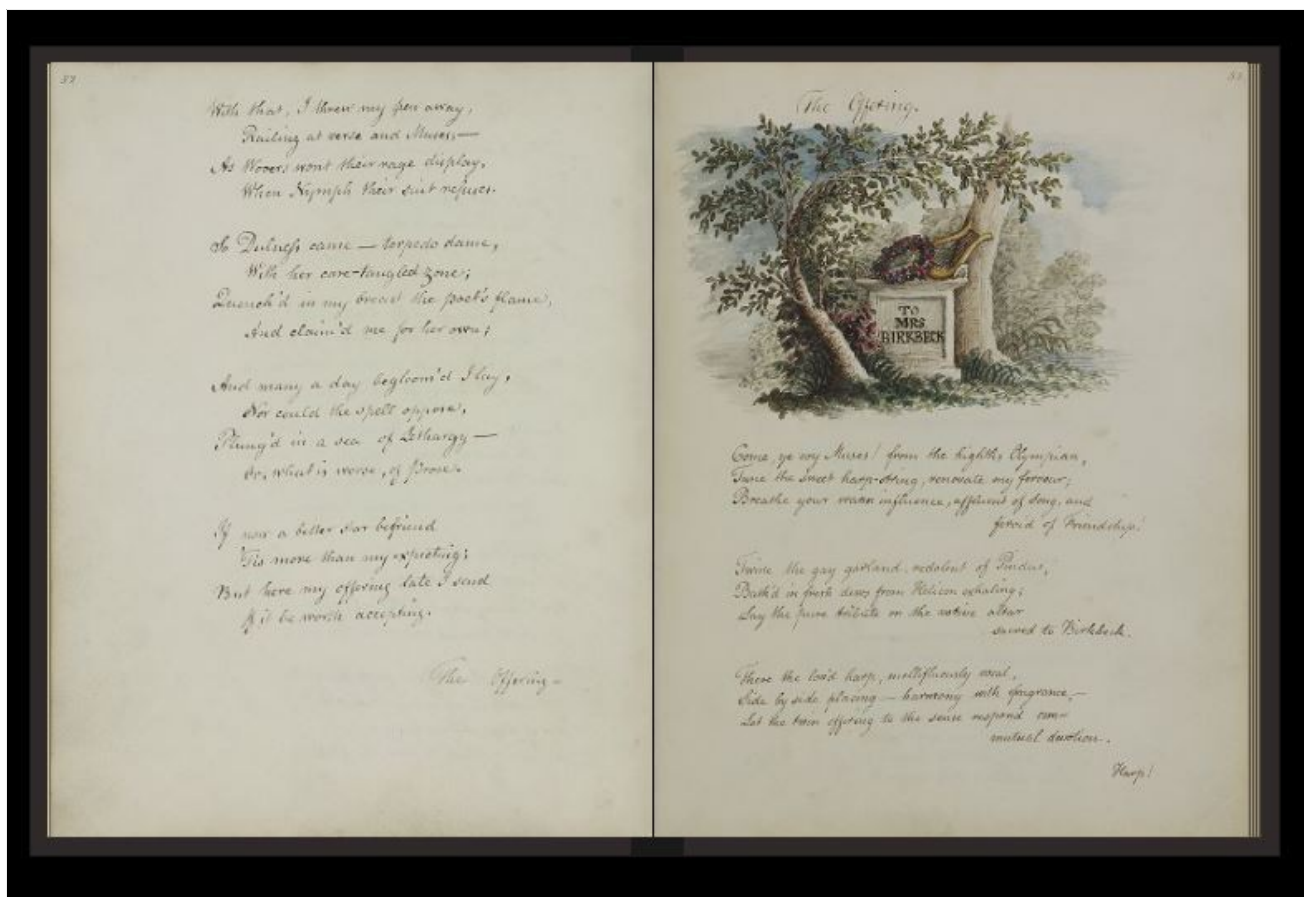 32
With that, I threw my pen away,
Railing at verse and Muses,—
As Wooers wont their rage display,
When Nymph their suit refuses.
So Dulness came — torpedo dame,
With her care-tangled zone;
Quench'd in my breast the poet's flame,
And claim'd me for her own;
And many a day begloom'd I lay,
Nor could the spell oppose,
Plung'd in a sea of Lethargy —
Or, what is worse, of Prose.
If now a better star befriend
'Tis more than my expecting;
But here my offering late I send
If it be worth accepting.
The Offering —
The Offering.
TO
MRS
BIRKBECK
Come, ye coy Muses! from the highths Olympian,
Tune the sweet harp-string, renovate my fervour;
Breathe your warm influence, affluent of song, and
fervid of Friendship!
Twine the gay garland, redolent of Pindus,
Bath'd in fresh dews from Helicon exhaling;
Lay the pure tribute on the votive altar
sacred to Birkbeck.
There the lov'd harp, mellifluously vocal,
Side by side placing — harmony with fragrance,—
Let the twin offering to the sense respond our
mutual devotion.
Harp!